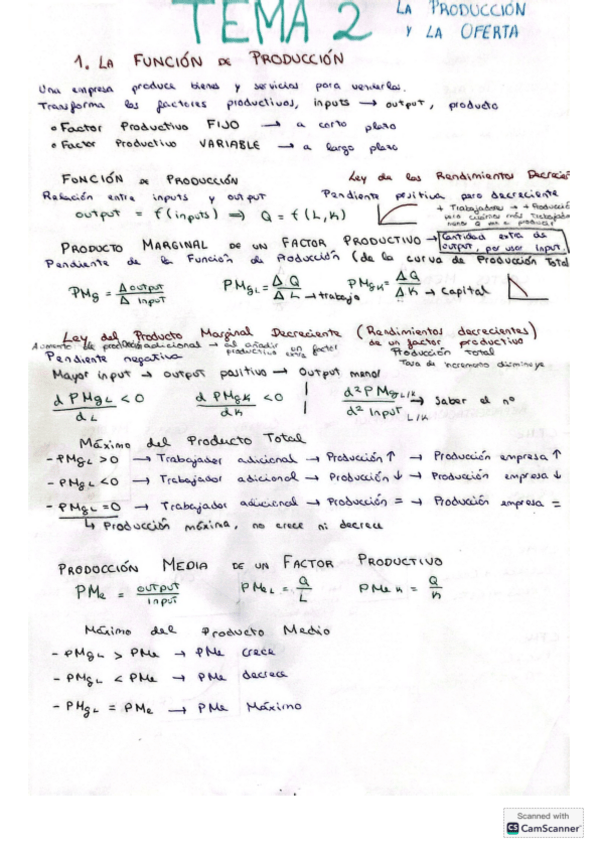 TEMA 2
LA PRODUCCIÓN
Y LA OFERTA
1. LA FUNCIÓN DE PRODUCCIÓN
Una empresa produce bienes y servicios para venderlos.
Transforma los factores productivos, inputs → output, producto
• Factor Productivo FIJO → a corto plazo
• Factor Productivo VARIABLE → a largo plazo
FUNCIÓN DE PRODUCCIÓN
Relación entre inputs y output
output = f(inputs) ⇒ Q = f(L,K)
Ley de los Rendimientos Decrecien
Pendiente positiva pero decreciente
+ Trabajadores → + Producció
pero cuantos más trabajado
menos Q van a producir
PRODUCTO MARGINAL DE UN FACTOR PRODUCTIVO → Cantidad extra de
output, por usar input.
Pendiente de la Función de Producción (de la curva de Producción Total
PMg = Δ output / Δ input
PMgL = Δ Q / Δ L → trabajo
PMgK = Δ Q / Δ K → Capital
Ley del Producto Marginal Decreciente (Rendimientos decrecientes)
de un factor productivo
Aumento de producción adicional → al añadir un factor
productivo extra
Producción Total
Tasa de incremento disminuye
Pendiente negativa
Mayor input → output positivo → Output menor
d PMgL / dL < 0
d PMgK / dK < 0
d² PMg L/K / d² Input L/K → Saber el nº
Máximo del Producto Total
- PMgL > 0 → Trabajador adicional → Producción ↑ → Producción empresa ↑
- PMgL < 0 → Trabajador adicional → Producción ↓ → Producción empresa ↓
- PMgL = 0 → Trabajador adicional → Producción = → Producción empresa =
↳ Producción máxima, no crece ni decrece
PRODUCCIÓN MEDIA DE UN FACTOR PRODUCTIVO
PMe = output / input
PMeL = Q / L
PMeK = Q / K
Máximo del Producto Medio
- PMgL > PMe → PMe crece
- PMgL < PMe → PMe decrece
- PMgL = PMe → PMe Máximo
Scanned with
CS CamScanner